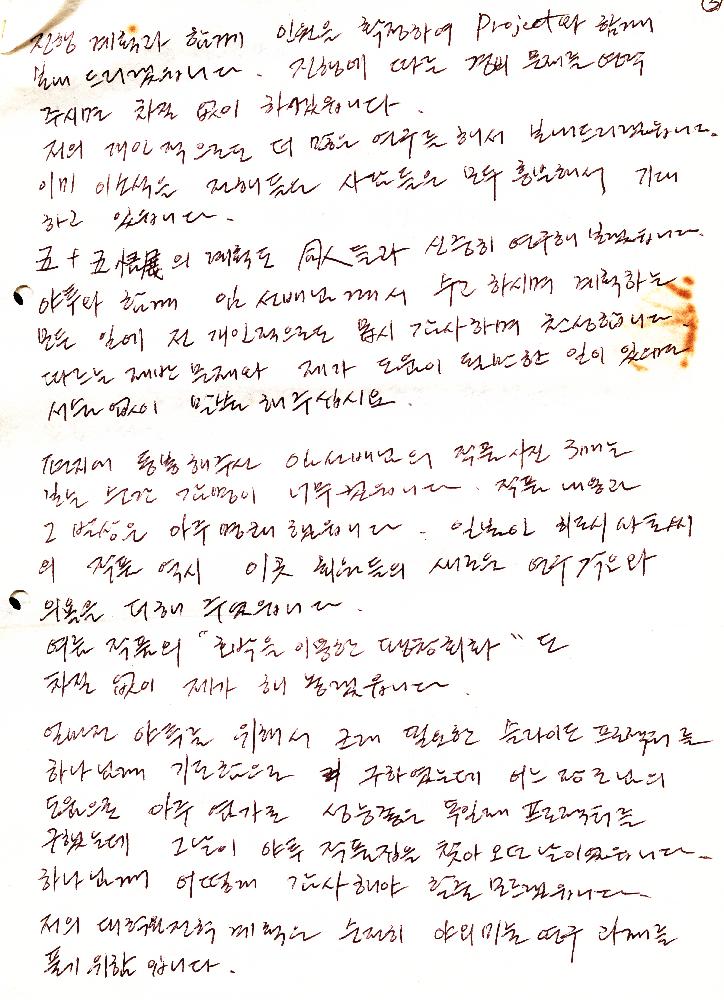 진행 계획과 함께 인원을 확정하여 Project와 함께
보내 드리겠읍니다. 진행에 따른 경비 문제를 연락
주시면 차질 없이 하겠읍니다.
저의 개인적으로도 더 많은 연구를 해서 보내드리겠읍니다.
이미 이 소식을 전해들은 사람들은 모두 흥분해서 기대
하고 있읍니다.
五十五悟展의 계획도 同人들과 신중히 연구해 보겠읍니다.
야투와 함께 임 선배님께서 수고 하시며 계획하는
모든 일에 전 개인적으로도 몹시 감사하며 찬성합니다.
따르는 제반 문제와 제가 도움이 될만한 일이 있다면
서슴없이 말씀 해주십시요.
편지에 동봉해주신 임선배님의 작품사진 3매는
받는 순간 감명이 너무 컸읍니다. 작품 내용과
그 발상은 아주 명쾌 했읍니다. 일본인
의 작품 역시 이곳 회원들의 새로운 연구 자료와
의욕을 더해 주었읍니다.
여름 작품의 "호박을 이용한 땡창회화"도
차질 없이 제가 해 놓겠읍니다.
얼마전 야투를 위해서 고래 필요한 슬라이드 프로젝터를
하나님께 기도함으로 구하였는데 어느 장로님의
도움으로 아주 염가로 성능좋은 독일제 프로젝터를
구했는데 그날이 야투 작품집을 찾아 오던 날이었읍니다.
하나님께 어떻게 감사해야 할줄 모르겠읍니다.
저의 대학원진학 계획은 순전히 야외미술 연구 과제를
풀기 위함 입니다.